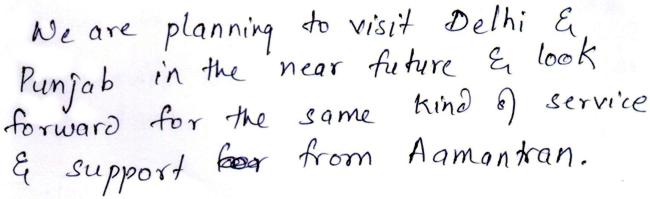 We are planning to visit Delhi &
Punjab in the near future & look
forward for the same kind of service
& support from Aamantran.